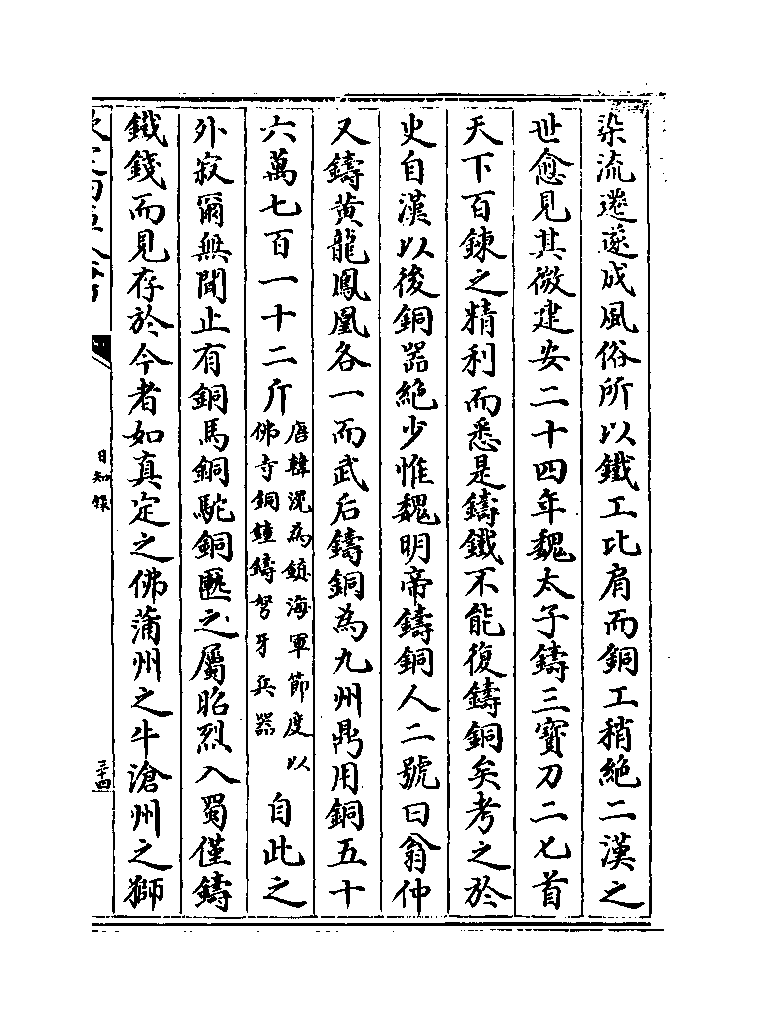 染流遷遂成風俗所以鐵工比肩而銅工稍絶二漢之
世愈見其微建安二十四年魏太子鑄三寳刀二匕首
天下百鍊之精利而悉是鑄鐵不能復鑄銅矣考之於
史自漢以後銅器絶少惟魏明帝鑄銅人二號曰翁仲
又鑄黄龍鳳凰各一而武后鑄銅為九州鼎用銅五十
六萬七百一十二斤唐韓滉為鎮海軍節度以佛寺銅鐘鑄弩牙兵器自此之
外寂爾無聞止有銅馬銅駝銅匭之屬昭烈入蜀僅鑄
鐵錢而見存於今者如真定之佛蒲州之牛滄州之獅
日知録
三十四